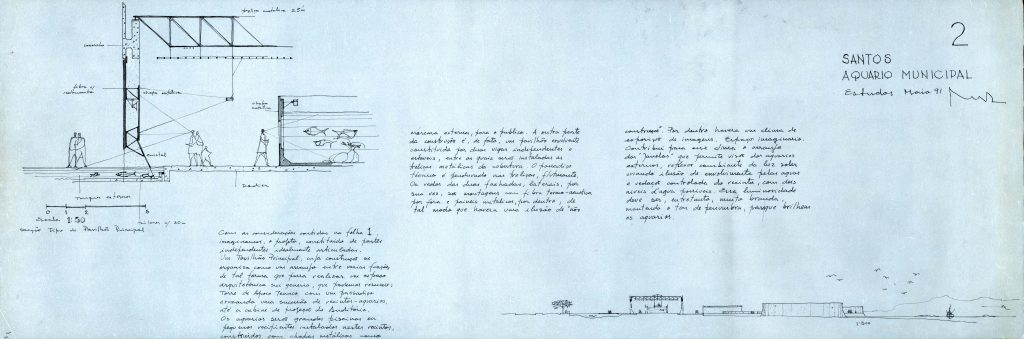 2
SANTOS
AQUARIO MUNICIPAL
Estudos Maio 91
treliça metálica 25m
concreto
chapa metálica
chapa metálica
cristal
tanque externo
0 1 2 5
Escala 1:50
secção Tipo do Pavilhão Principal
Com as considerações contidas na folha 1,
imaginamos, o projeto, constituido de partes
independentes idealmente articuladas.
Um Pavilhão Principal, cuja construção se
organiza como um arranjo entre varias funções
de tal forma que possa realizar um espaço
arquitetônico sui generis, que podemos resumir:
Torre de Apoio Tecnico com um passadiço
comando uma sucessão de recintos-aquarios,
até a cabine de projeção do Auditório.
Os aquarios serão grandes piscinas ou
pequenos recipientes instalados nestes recintos,
construidos com chapas metálicas
externos, para o publico. A outra parte
da construção é, de fato, um pavilhão envolvente
constituido por duas vigas independentes e
estaveis, entre as quais serão instaladas as
treliças metalicas da cobertura. O passadiço
técnico é pendurado nas treliças, flutuante.
Os vedos das duas fachadas, laterais, por
sua vez, são montagens em fibra termo-acustica
por fora e paineis metalicos, por dentro, de
tal modo que havera uma ilusão de "não
construção". Por dentro havera um clima de
explosivo de imagens. Espaço imaginario.
Contribui para esse clima o arranjo
das "janelas" que permite visão dos aquarios
exteriores, reflexo cambiante da luz solar
criando ilusão de envolvimento pelas aguas
e vedação controlada do recinto, com dois
niveis d'agua possiveis. Essa luminosidade
deve ser, entretanto, muito branda,
mantendo o tom de penumbra, para que brilhem
os aquarios.
1:500